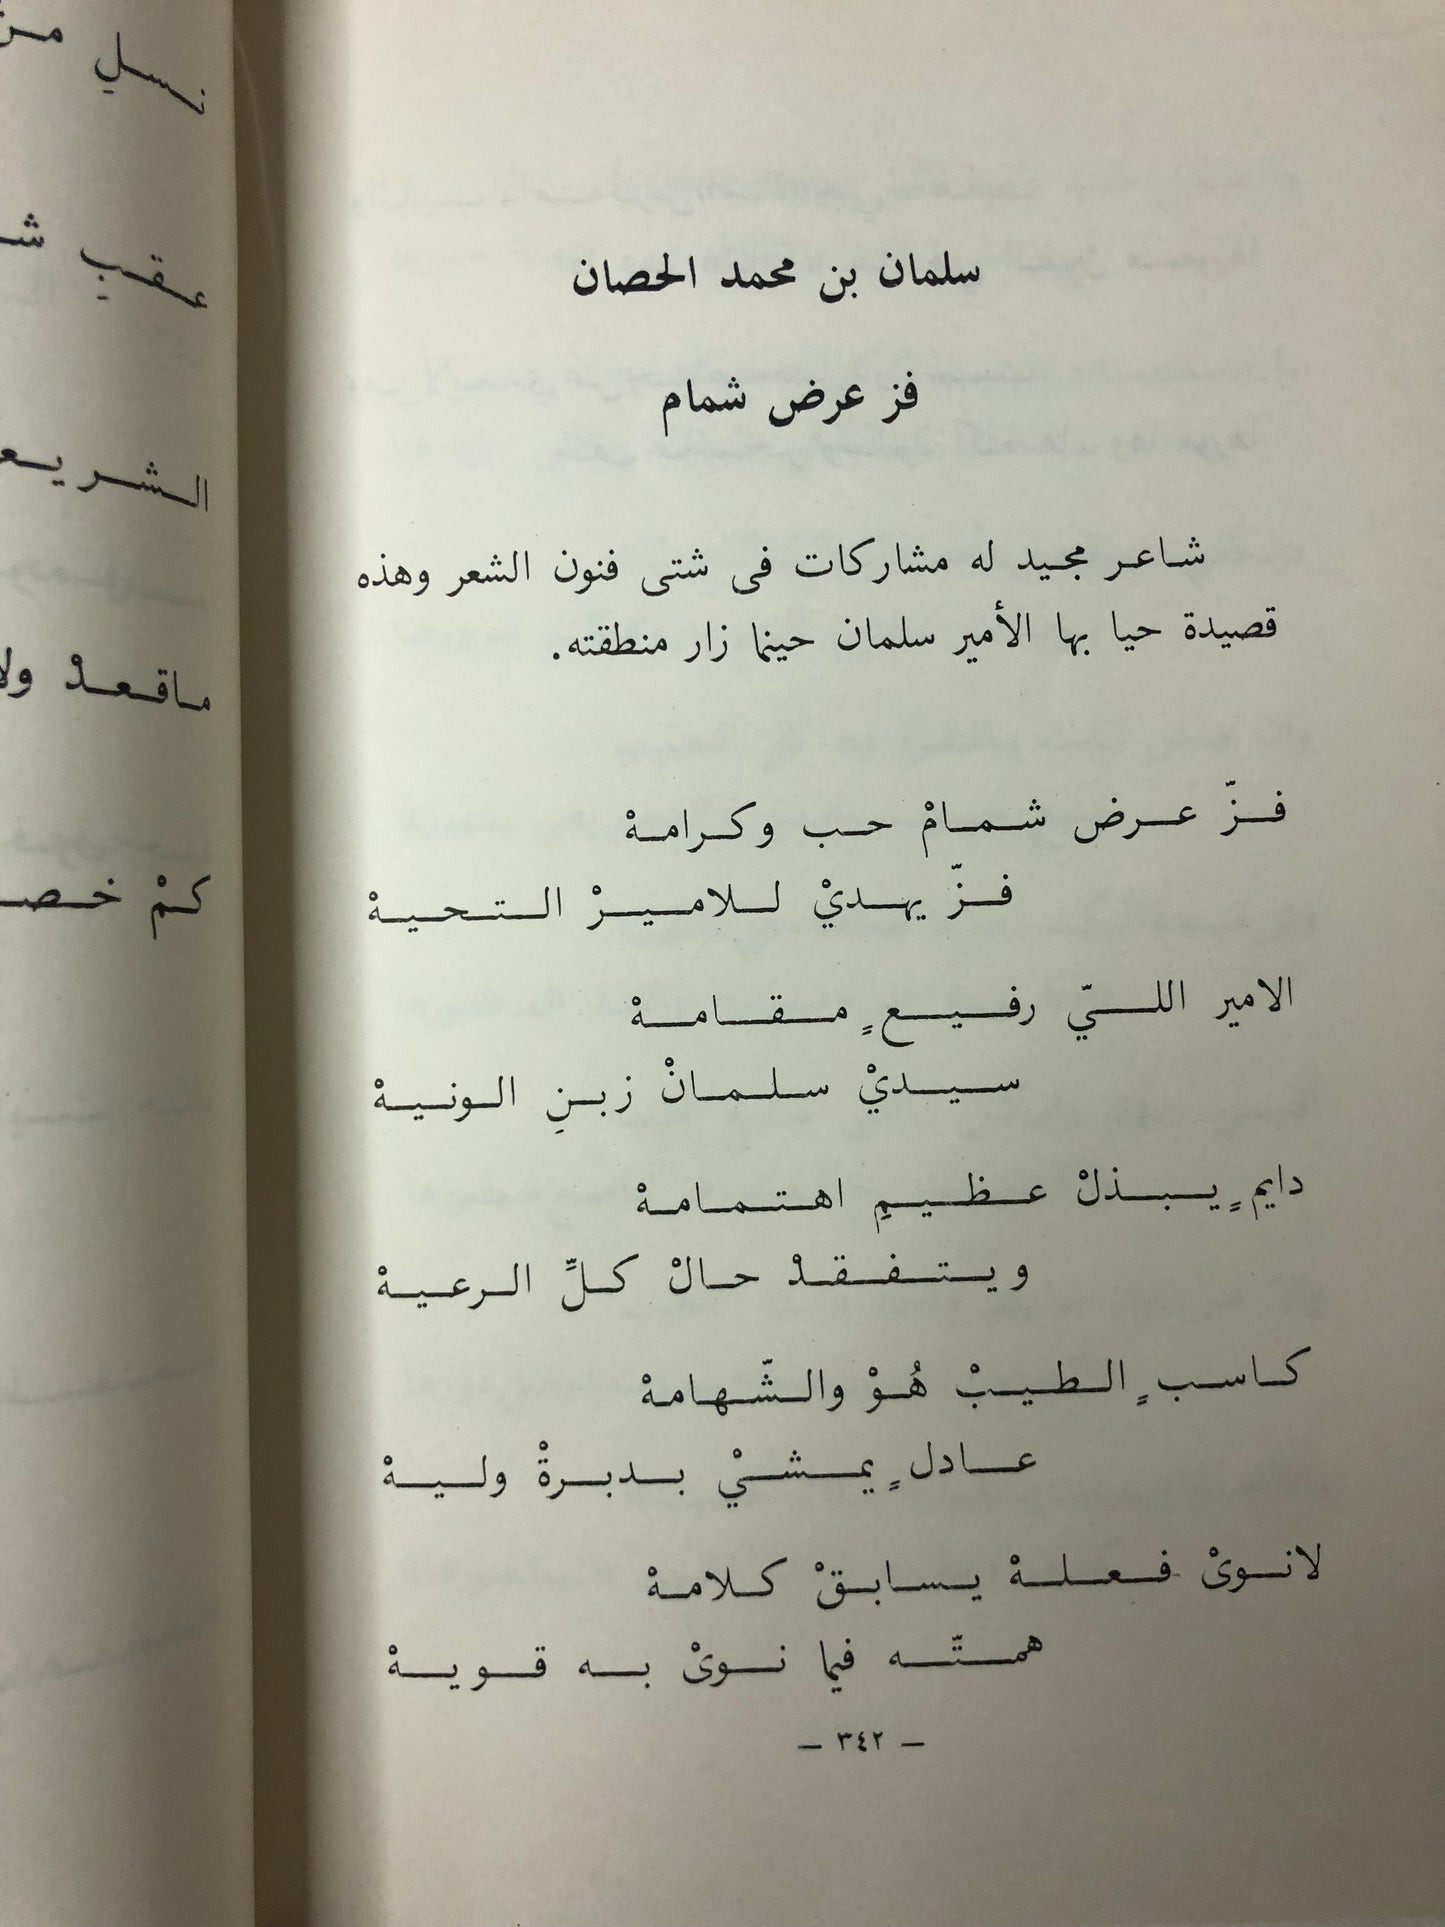 سلمان بن محمد الحصان
فز عرض شمام
شاعر مجيد له مشاركات فى شتى فنون الشعر وهذه
قصيدة حيا بها الأمير سلمان حينما زار منطقته.
فزّ عرض شمامْ حب وكرامهْ
فزّ يهديْ للاميرْ التحيهْ
الامير الليّ رفيعٍ مقامهْ
سيديْ سلمانْ زبنِ الونيهْ
دايمٍ يبذلْ عظيمِ اهتمامهْ
ويتفقدْ حالْ كلِّ الرعيهْ
كاسبٍ الطيبْ هُوْ والشّهامهْ
عادلٍ يمشيْ بدبرةْ وليهْ
لانوىْ فعلهْ يسابقْ كلامهْ
همتّه فيما نوىْ به قويهْ
— ٣٤٢ —
نسلِ
عقبِ
الشريع
ماقعدْ ولا
كمْ خصـ